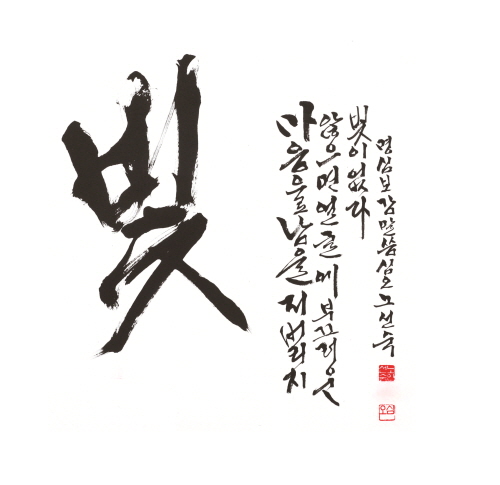 빛
마음을 남을 저버리지
않으면 얼굴에 부끄러운
빛이 없다
명심보감 말씀 심오 노선숙